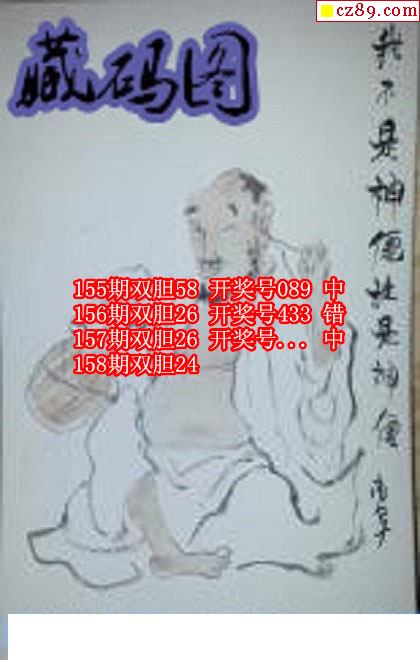 cz89.com
藏码图
我不是神但性是神但
155期双胆58 开奖号089 中
156期双胆26 开奖号433 错
157期双胆26 开奖号... 中
158期双胆24